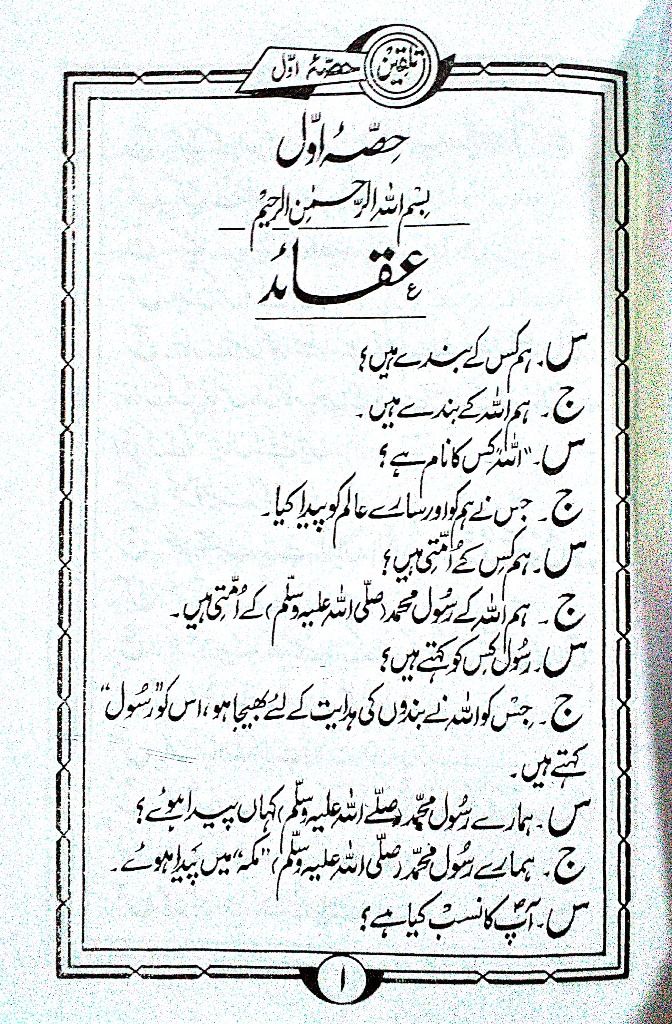 تلقین حصّۂ اوّل
حِصّۂ اوّل
بِسْمِ اللہِ الرَّحْمٰنِ الرَّحِیْمِ
عقائدُ
س۔ ہم کس کے بندے ہیں؟
ج۔ ہم اللہ کے بندے ہیں۔
س۔ "اللہ" کس کا نام ہے؟
ج۔ جس نے ہم کو اور سارے عالم کو پیدا کیا۔
س۔ ہم کس کے اُمّتی ہیں؟
ج۔ ہم اللہ کے رسُول محمد (صلّی اللہ علیہ وسلّم) کے اُمّتی ہیں۔
س۔ رسُول کس کو کہتے ہیں؟
ج۔ جس کو اللہ نے بندوں کی ہدایت کے لئے بھیجا ہو، اس کو "رسُول"
کہتے ہیں۔
س۔ ہمارے رسُول محمّد (صلّے اللہ علیہ وسلّم) کہاں پیدا ہوئے؟
ج۔ ہمارے رسُول محمّد (صلّی اللہ علیہ وسلّم) "مکہ" میں پیدا ہوئے۔
س۔ آپؐ کا نسب کیا ہے؟
۱